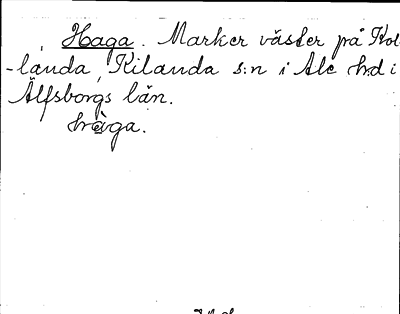 Haga. Marker väster på Kol
-landa, Kilanda s:n i Ale h:d i
Älfsborgs län.
håga.